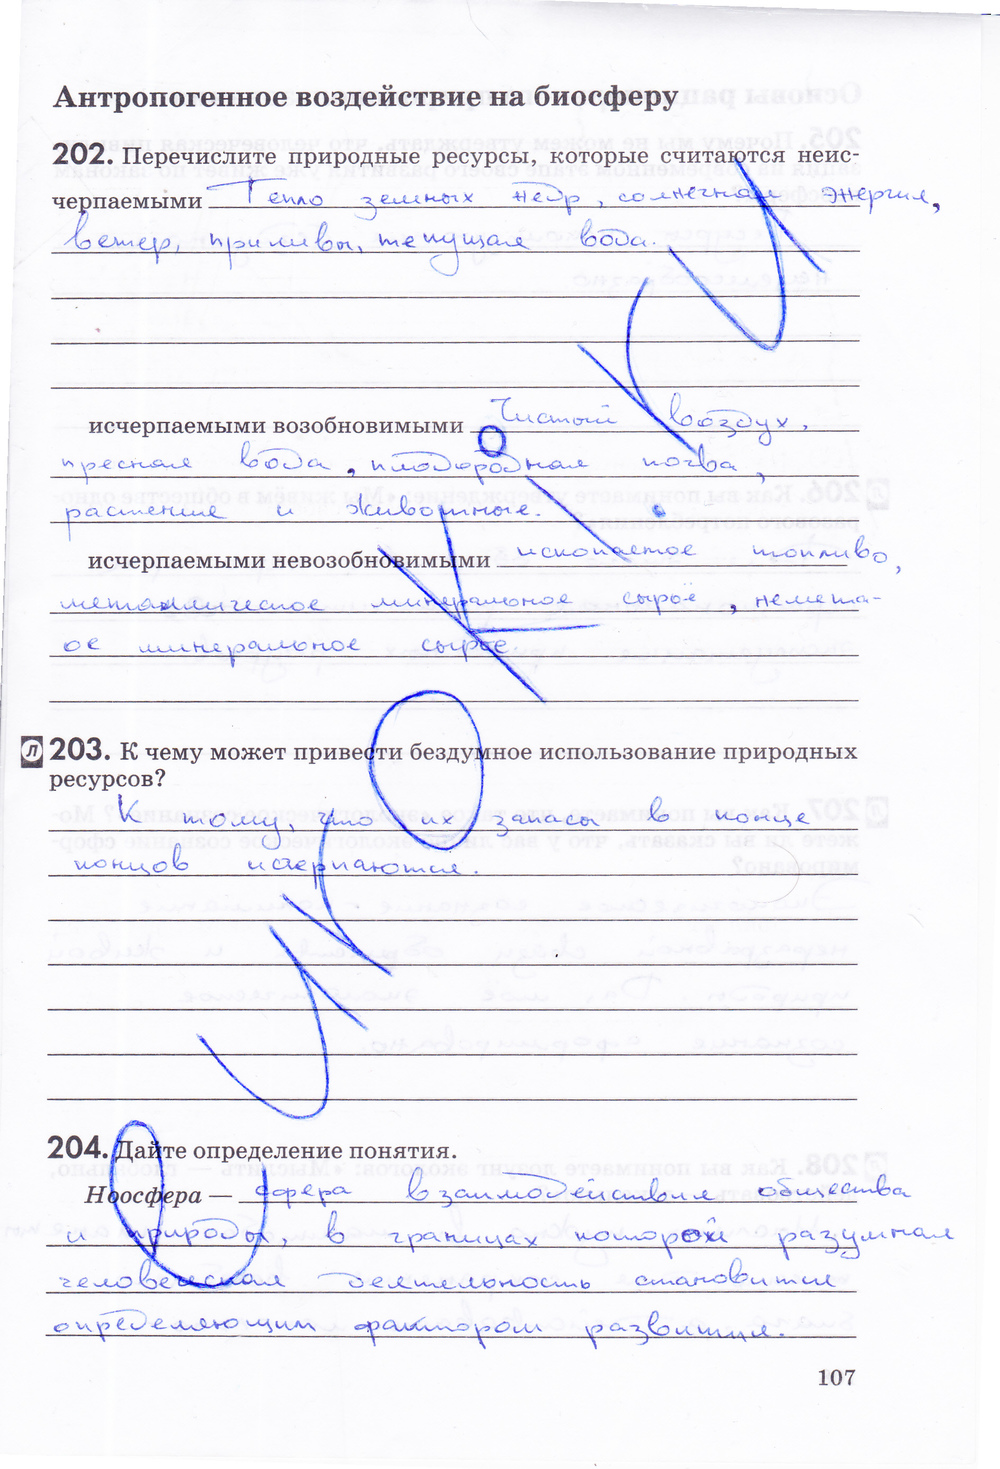 Антропогенное воздействие на биосферу
202. Перечислите природные ресурсы, которые считаются неис-
черпаемыми Тепло земных недр, солнечная энергия,
ветер, приливы, текущая вода.
исчерпаемыми возобновимыми Чистый воздух,
пресная вода, плодородная почва,
растение и животные.
исчерпаемыми невозобновимыми ископаемое топливо,
металлическое минеральное сырьё, немета-
ое минеральное сырьё
Л 203. К чему может привести бездумное использование природных
ресурсов?
К тому, что их запасы в конце
концов исчерпаются.
204. Дайте определение понятия.
Ноосфера — сфера взаимодействия общества
и природы, в границах которой разумная
человеческая деятельность становится
определяющим фактором развития.
107